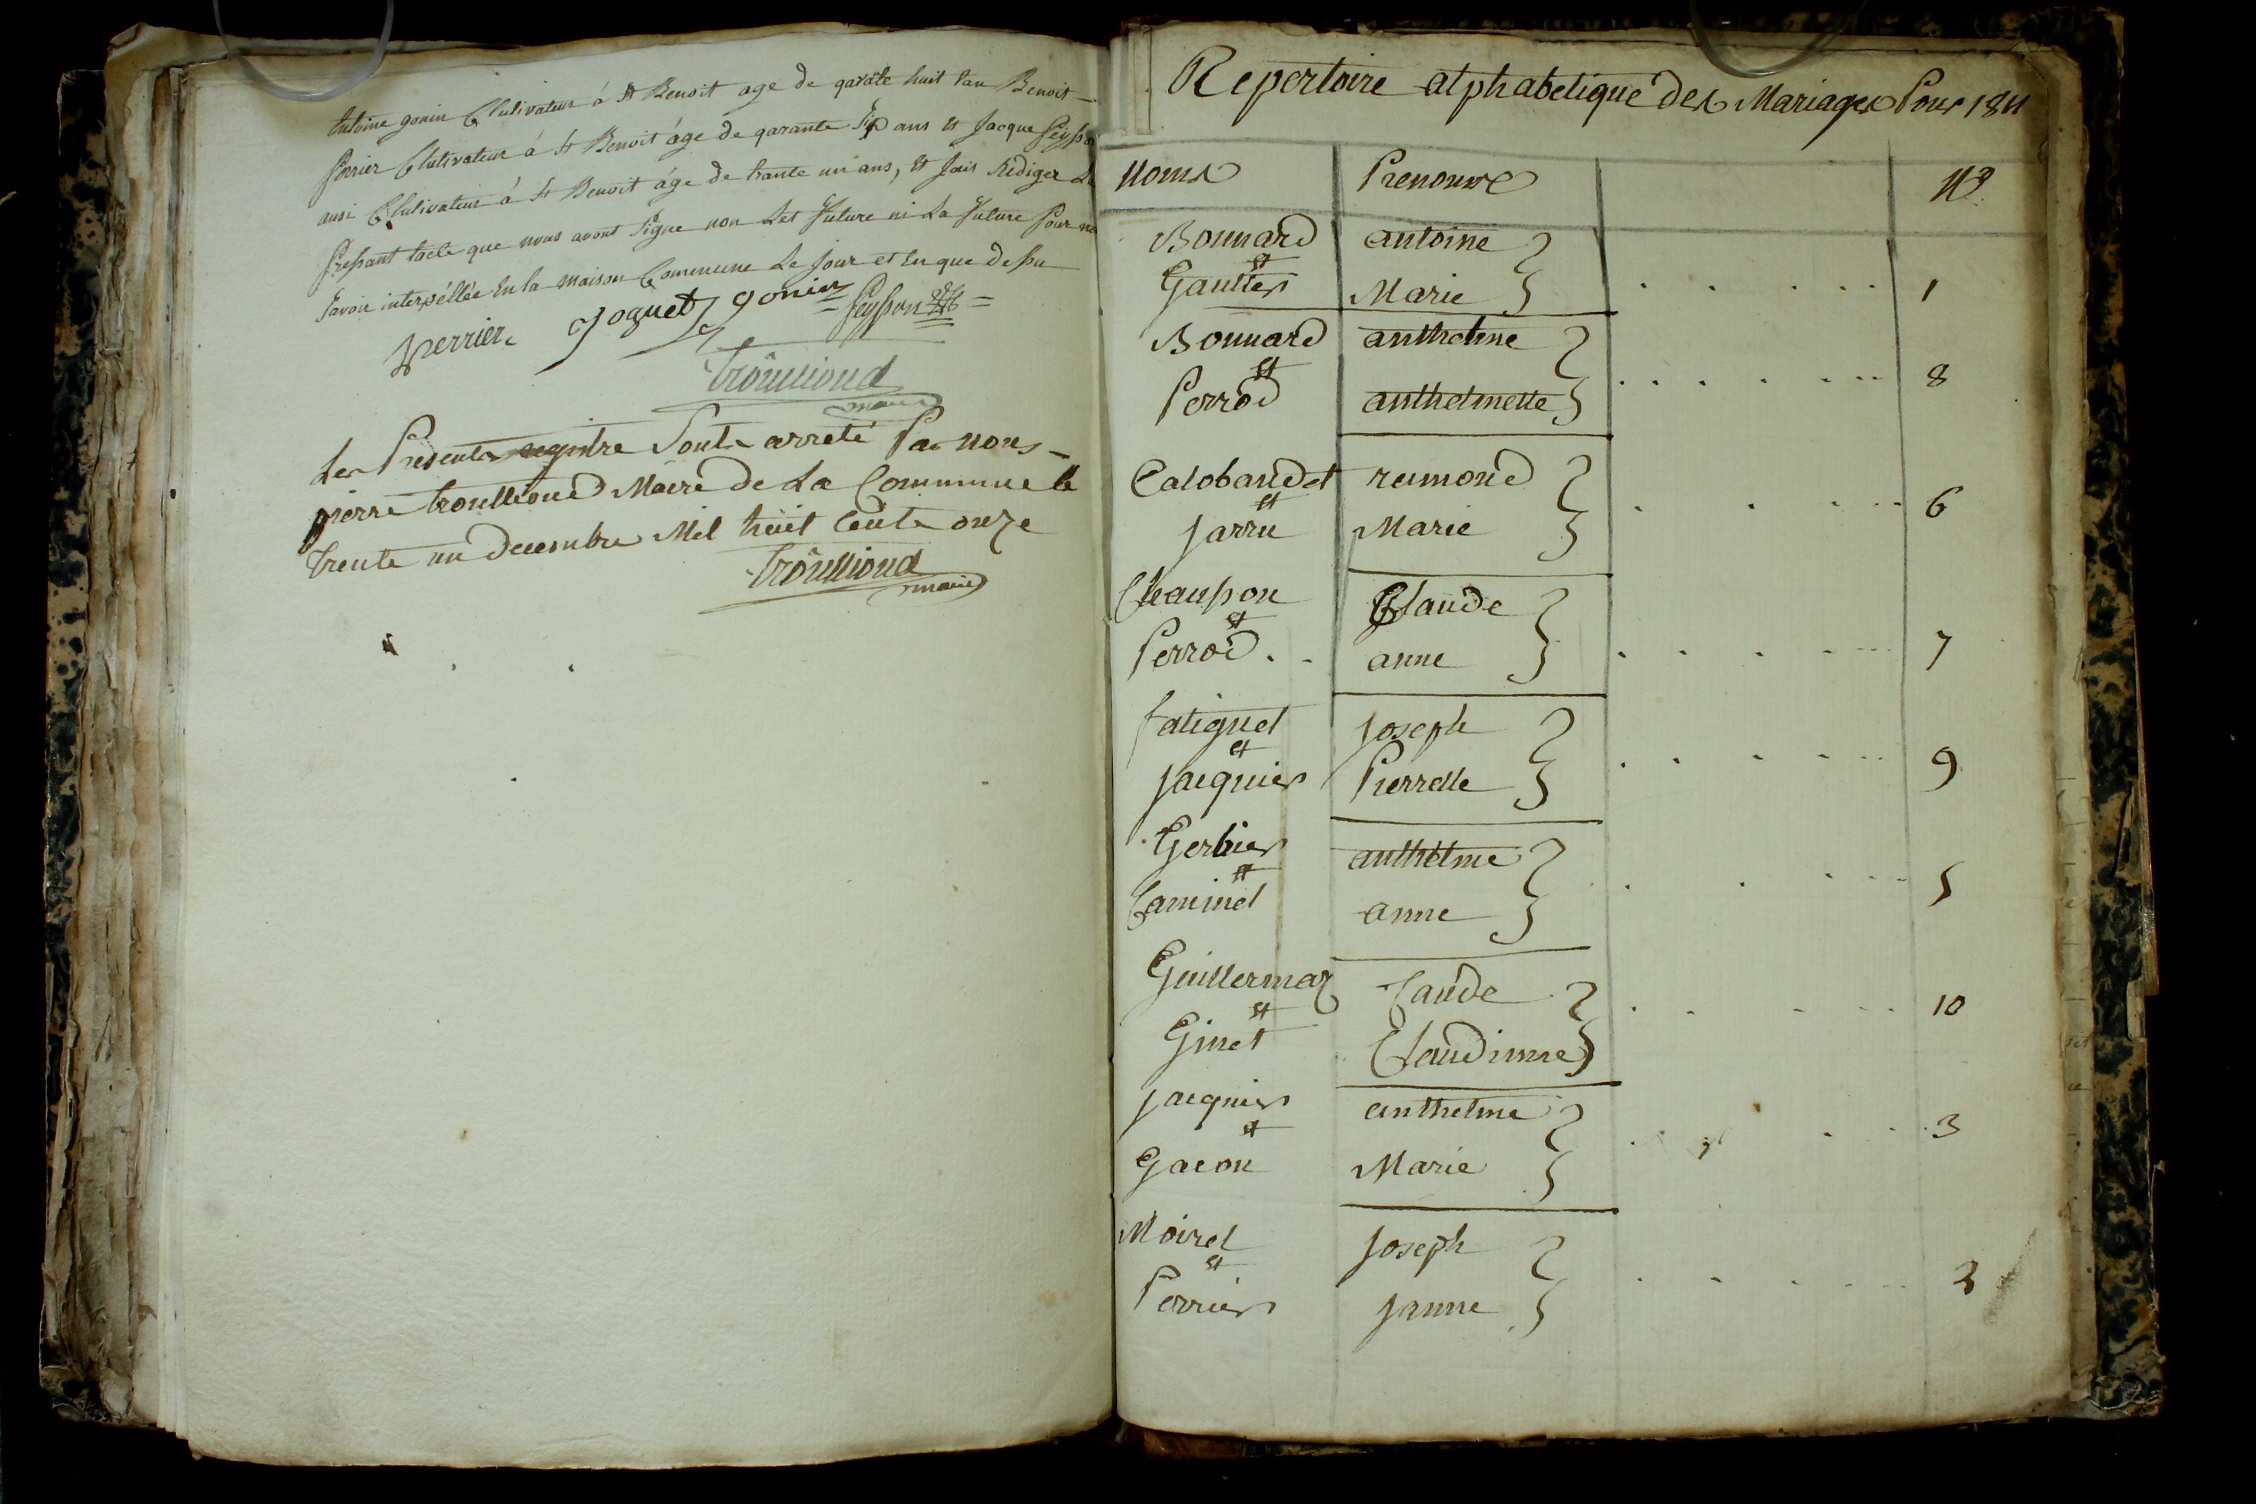 Antoine gonin Clutivateur á St Benoit age de qarate huit ans Benoit
Perrier Clutivateur á St Benoit áge de qarante Sip ans et Jacque Peysson
ausi Clutivateur á St Benoit áge de trante un ans, et Jais Rediger Le
Pressant tacte que nous avont Signe non Let future ni La future Pour ne
Savoir interpéllée En la maison Commune Le Jour et En que dessu
Perrier Joguet gonin Peysson
troullioud
maire
Les Presente registre Sonte arreté Par nous
pierre troullioud Maire de La Commune le
trente un decembre Mil huit Cente onze
troullioud
maire
Repertoire alphabetique des Mariages Pour 1811
Noms Prenoms No
Bonnard antoine
et
Gautier Marie 1
Bonnard anthelme
et
Perrod anthelmette 8
Calobaudet reimond
et
Jarru Marie 6
Chausson Claude
et
Perrod anne 7
fatiguet Joseph
et
Jacquier Pierrette 9
Gerbier anthelme
et
Caminet anne 5
Guillermaz Caude
et
Ginet Claudinne 10
Jacquier anthelme
et
Gacon Marie 3
Moiret Joseph
et
Perrier Janne 2